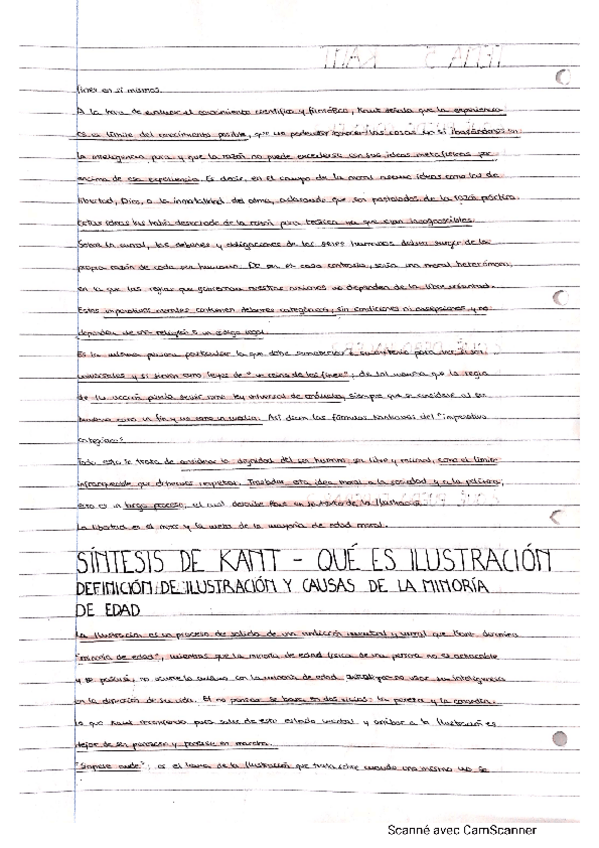 fines en sí mismos.
A la hora de evaluar el conocimiento científico y filosófico, Kant señala que la experiencia
es el límite del conocimiento posible, que no podemos conocer las cosas en sí basándonos en
la inteligencia pura y que la razón no puede excederse con sus ideas metafísicas por
encima de esa experiencia. Es decir, en el campo de la moral asume ideas como las de
libertad, Dios, o la inmortalidad del alma, aclarando que son postulados de la razón práctica.
Estas ideas las había desechado de la razón pura teórica ya que eran incognoscibles.
Sobre la moral, los deberes y obligaciones de los seres humanos deben surgir de la
propia razón de cada ser humano. De en el caso contrario, sería una moral heterónoma,
en la que las reglas que gobiernan nuestras acciones no dependen de la libre voluntad.
Estos imperativos morales contienen deberes categóricos, sin condiciones ni excepciones y no
dependen de una religión o un código legal.
Es la misma persona particular la que debe someterlos a
universales y si sirven como leyes de "un reino de los fines", de tal manera que la regla
de tu acción pueda servir como ley universal de conducta, siempre que se considere al ser
humano como un fin y no como un medio. Así dicen las fórmulas kantianas del "imperativo
categórico"
Todo esto se trata de considerar la dignidad del ser humano, ser libre y racional, como el límite
infranqueable que debemos respetar. Trasladar esta idea moral a la sociedad y a la política,
esto es un largo proceso, el cual describe Kant en la
La libertad es el motor y la meta de la mayoría de edad moral.
SÍNTESIS DE KANT - QUÉ ES ILUSTRACIÓN
DEFINICIÓN DE ILUSTRACIÓN Y CAUSAS DE LA MINORÍA
DE EDAD
La Ilustración es un proceso de salida de una condición mental y moral que Kant denomina
"minoría de edad", mientras que la minoría de edad física de una persona no es achacable
y es pasiva, no ocurre lo mismo con la minoría de edad por no usar su inteligencia
en la dirección de su vida. El no pensar se basa en dos vicios: la pereza y la cobardía.
Lo que Kant recomienda para salir de este estado mental y arribar a la Ilustración es
dejar de ser perezoso y ponerse en marcha.
"Sapere aude", es el lema de la Ilustración que trata sobre cuando uno mismo no se
Scanné avec CamScanner